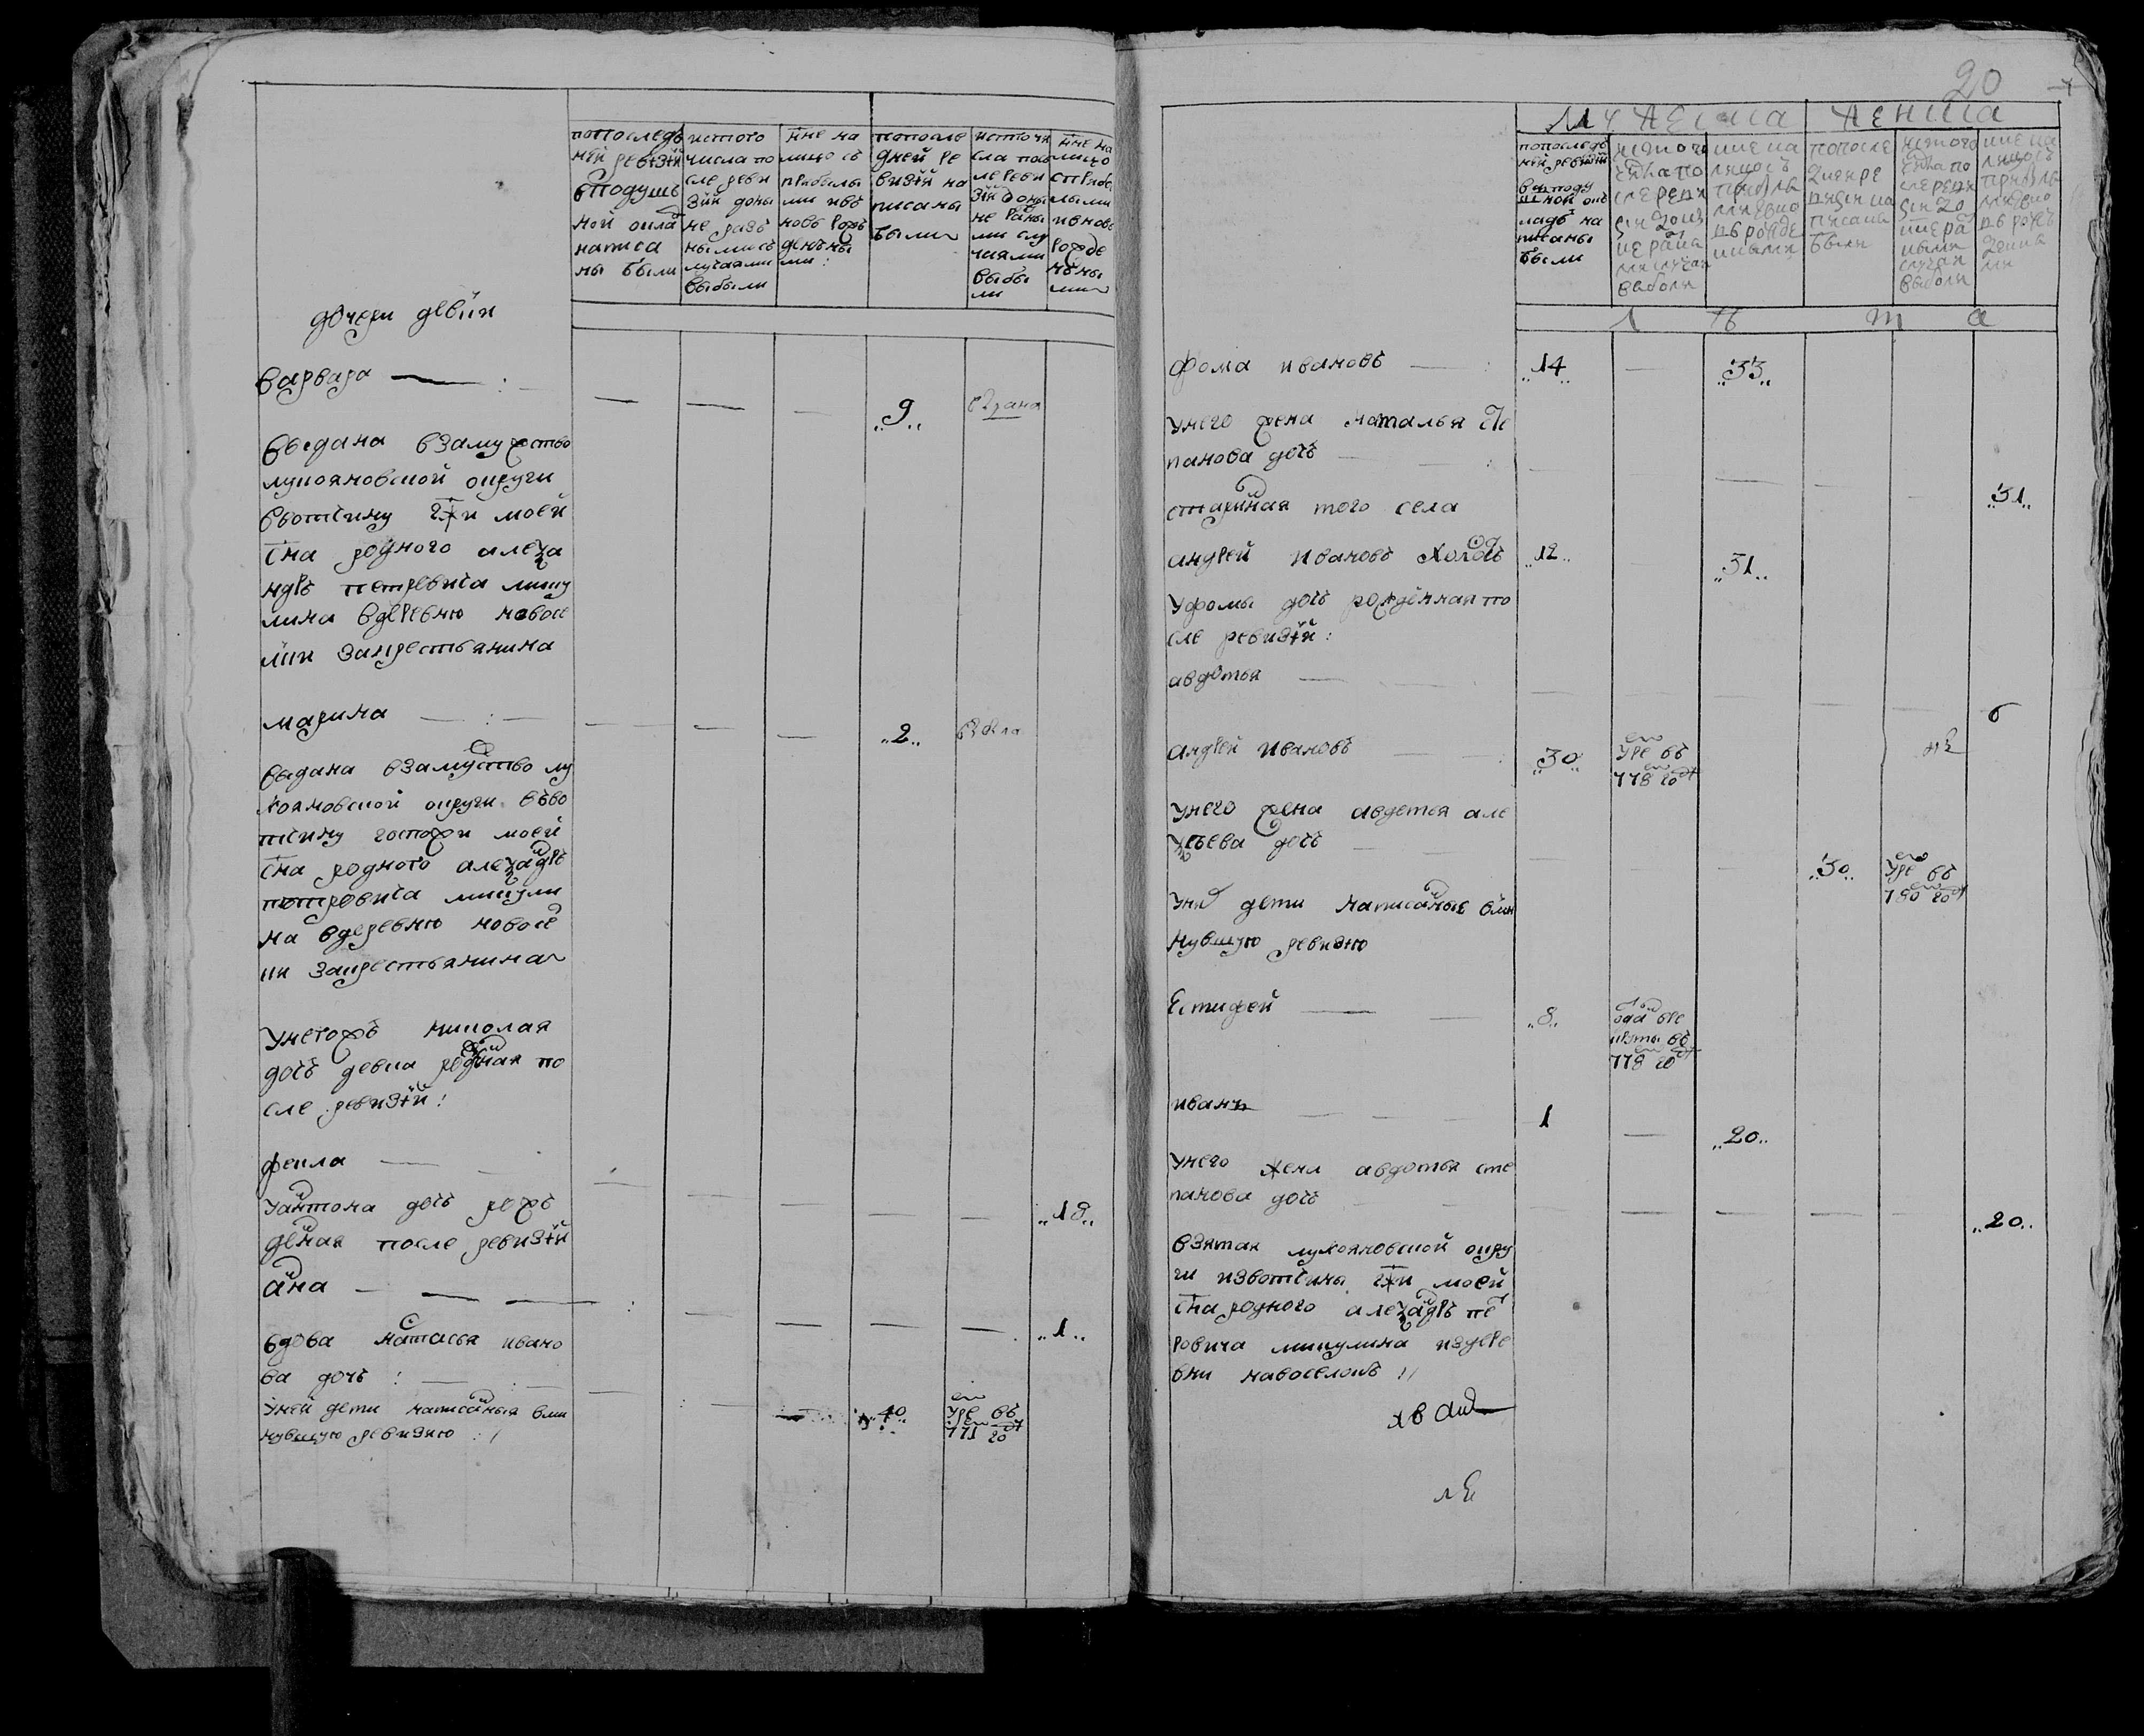 попоследъ
ней ревизіи
вподушъ
ной окла
написа
ны были
истого
числа по
сле реви
зіи доны
не разъ
ными съ
лучаями
выбыли
нне на
лицо съ
прибылы
ми ивъ
новь рожъ
денъны
ми :
попосле
дней ре
визіи на
писаны
были
источи
сла пос
ле реви
зіи доны
не разны
ми слу
чаями
выбы
ли
нне на
лицо
сприбы
лыми
ивновь
рожде
нъны
ми
дочери девки
варвара
9
выдана
выдана взамужство
лукояновской округи
вотчину гжи моей
сна родного алеѯа
ндръ петровича мику
лина вдеревню новосе
лки закрестьянина
марина
2
выдана взамужство лу
кояновской округи въво
тчину госпожи моей
сна родного алеѯандръ
петровича микули
на вдеревню новосе
лки закрестьянина
унегожъ николая
дочь девка рожденая по
сле ревизіи :
фекла
18
уантона дочь рожъ
деная после ревизіи
анна
1
вдова настасья ивано
ва дочь :
40
умре въ
771 году
унеи дети написаныя вми
нувшую ревизию :
20
мужеска
женска
попоследъ
ней ревизіи
вподу
шной окъ
ладъ на
писаны
были
истого
числа по
сле реви
зіи доны
не разны
ми случая
выбыли
нне на
лицосъ
прибылы
ми ивно
въ рожде
нными
попосле
дней ре
визіи на
писаны
были
истого
числа по
сле реви
зіи до
нне раз
ными
случаи
выбыли
нне на
лицосъ
прибылы
ми ивно
въ рожъ
денна
ми
л ѣ т а
фома ивановъ
14
33
унего жена наталья сте
панова дочь
31
старинная того села
андрей ивановъ холостъ
12
31
уфомы дочь рожденная по
сле ревизіи :
авдотья
6
андрей ивановъ
30
умре въ
778 году
унего жена авдотья але
ѯѣева дочь
30
умре въ
780 году
уних дети написанные вми
нувшую ревизию
Естифей
8
отдан вре
круты въ
778 году
иванъ
1
20
унего жена авдотья сте
панова дочь
20
взятая лукояновской окру
ги извотчины гжи моей
сна родного алеѯандръ пет
ровича микулина издере
вни навоселокъ